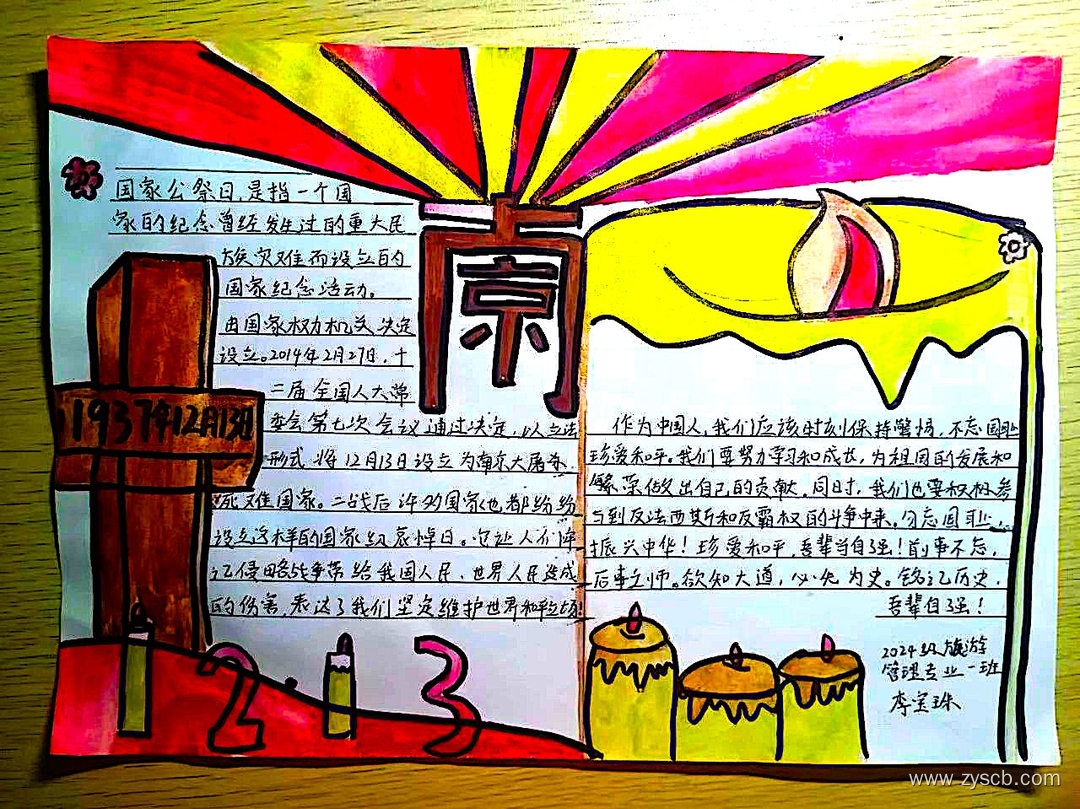 国家公祭日,是指一个国
家的纪念曾经发生过的重大民
族灾难而设立的
国家纪念活动。
由国家权力机关决定
设立。2014年2月27日,十
二届全国人大常
委会第七次会议通过决定,以立法
形式将12月13日设立为南京大屠杀
死难国家。二战后许多国家也都纷纷
设立这样的国家级哀悼日。它让人们牢
记侵略战争带给我国人民、世界人民造成
的伤害,表达了我们坚定维护世界和平立场!
南京
1937年12月13日
12 13
作为中国人,我们应该时刻保持警惕,不忘国耻
珍爱和平。我们要努力学习和成长,为祖国的发展和
繁荣做出自己的贡献。同时,我们也要积极参
与到反法西斯和反霸权的斗争中来。勿忘国耻,
振兴中华!珍爱和平,吾辈当自强!前事不忘,
后事之师。欲知大道,必先为史。铭记历史,
吾辈自强!
2024级旅游
管理专业一班
李宝珠
www.zyscb.com